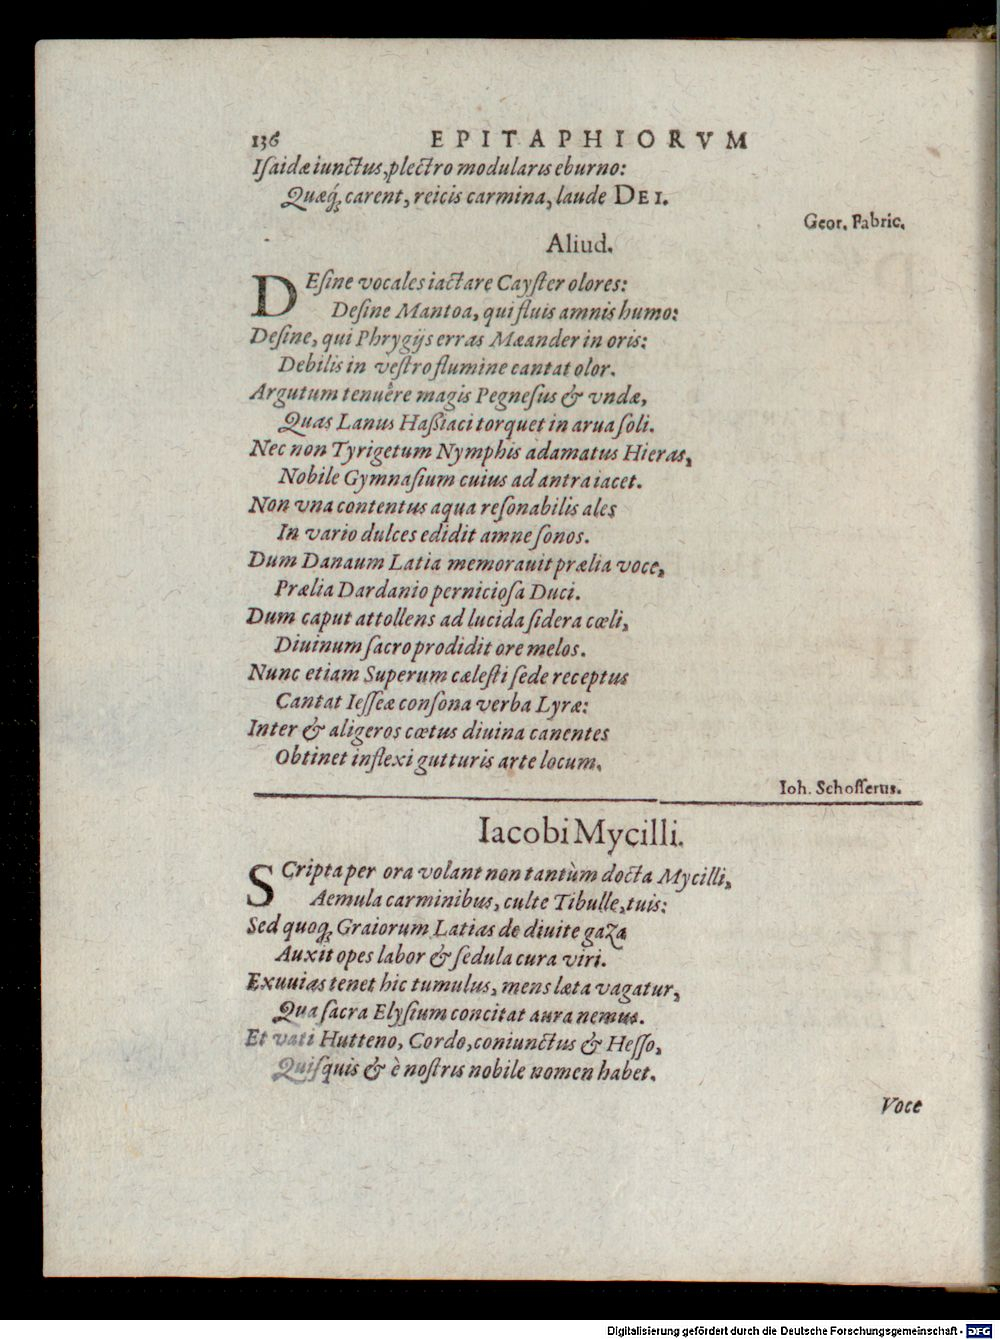 136 EPITAPHIORVM
Iſaidæ iunctus, plectro modularis eburno:
Quæq́ꝫ carent, reicis carmina, laude DEI.
Geor. Fabric.
Aliud.
DEſine vocales iactare Cayſter olores:
Deſine Mantoa, qui fluis amnis humo:
Deſine, qui Phrygijs erras Mæander in oris:
Debilis in veſtro flumine cantat olor.
Argutum tenuêre magis Pegneſus & vndæ,
Quas Lanus Haßiaci torquet in arua ſoli.
Nec non Tyrigetum Nymphis adamatus Hieras,
Nobile Gymnaſium cuius ad antra iacet.
Non vna contentus aqua reſonabilis ales
In vario dulces edidit amne ſonos.
Dum Danaum Latia memorauit prælia voce,
Prælia Dardanio pernicioſa Duci.
Dum caput attollens ad lucida ſidera cœli,
Diuinum ſacro prodidit ore melos.
Nunc etiam Superum cæleſti ſede receptus
Cantat Ieſſeæ conſona verba Lyræ:
Inter & aligeros cœtus diuina canentes
Obtinet inflexi gutturis arte locum.
Ioh. Schoſſerus.
Iacobi Mycilli.
SCripta per ora volant non tantùm docta Mycilli,
Aemula carminibus, culte Tibulle, tuis:
Sed quoqꝫ Graiorum Latias de diuite gaza
Auxit opes labor & ſedula cura viri.
Exuuias tenet hic tumulus, mens læta vagatur,
Qua ſacra Elyſium concitat aura nemus.
Et vati Hutteno, Cordo, coniunctus & Heſſo,
Quiſquis & è noſtris nobile nomen habet.
Voce
Digitalisierung gefördert durch die Deutsche Forschungsgemeinschaft - DFG